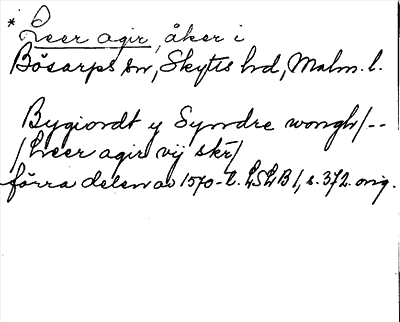 * Leer agir, åker i
Bösarps sn, Skytts hd, Malm. l.
Bygiordt y Syndre wongh/--
/Leer agir vij skr/
förra delen av 1570-t. LSLB 1, s. 372. orig.